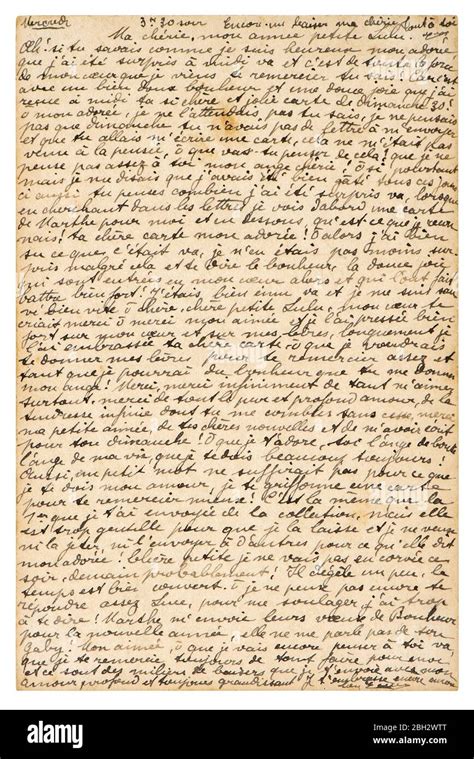 Mercredi 3h 30 soir Encore un baiser ma chérie tout à toi
Ma chérie, mon aimée petite Lulu.
Oh! si tu savais comme je suis heureux mon adorée
que j'ai été surpris à midi va et c'est de toute la force
de mon cœur que je viens te remercier
avec un bien doux bonheur et une douce joie que j'ai
reçue à midi ta si chère et jolie carte de dimanche 30!
ô mon adorée, je ne l'attendais pas tu sais, je ne pensais
pas que dimanche tu n'avais pas de lettre à m'envoyer
et que tu allais m'écrire une carte, cela ne m'était pas
venu à la pensée, ô que vas-tu penser de cela! que je ne
pense pas assez à toi mon ange chérie! Si pourtant
mais je me disais que j'avais été bien gâté tous ces jours
si tu penses combien j'ai été surpris va, lorsque
en cherchant dans les lettres je vois d'abord une carte
de Marthe pour moi et en dessous, qu'est-ce que je reconnais!
ta chère carte mon adorée! ô alors j'ai bien
su ce que c'était va, je n'en étais pas moins surpris
malgré cela et te dire le bonheur, la douce joie
qui sont entrés en mon cœur alors et qui l'ont fait
battre bien fort! C'était bien ému va et je me suis
bien vite ô chère, chère petite Lulu, mon cœur te
criait merci ô merci mon aimée et je l'ai pressée bien
fort sur mon cœur et sur mes lèvres, longuement je
l'ai embrassée ta chère carte ô que je voudrais
te donner mes lèvres pour te remercier assez et
tant que je pourrai du bonheur que tu me donnes
mon ange! Merci, merci infiniment de tant m'aimer
surtout, merci de tout le pur et profond amour, de la
tendresse infinie dont tu me combles sans cesse, merci
ma petite aimée, de tes chères nouvelles et de m'avoir écrit
pour ton dimanche! ô que je t'adore, toi l'ange de bonté
l'ange de ma vie que je dois beaucoup toujours!
Aussi, un petit mot ne suffirait pas pour ce que
je te dois mon amour, je te griffonne une carte
pour te remercier mieux! C'est la même que la
1ère que je t'ai envoyée de la collection, mais elle
est trop gentille pour que je la laisse et je ne veux
ni la jeter, ni l'envoyer à d'autres pour ce qu'elle dit
mon adorée! Chère petite je ne vais pas en corvée ce
soir, demain probablement! Il dégèle un peu, le
temps est bien couvert. ô je ne peux pas encore te
répondre assez Lulu, pour me soulager, j'ai trop
à te dire! Marthe m'envoie leurs vœux de Bonheur
pour la nouvelle année, elle ne me parle pas de ton
Gaby! Mon aimée, ô que je vais encore penser à toi va,
que je te remercie toujours de tout faire pour moi
et ce sont des milliers de baisers que je t'envoie avec mon
amour profond et toujours grandissant je t'embrasse encore
alamy
alamy
Image ID: 2BH2WTT
www.alamy.com